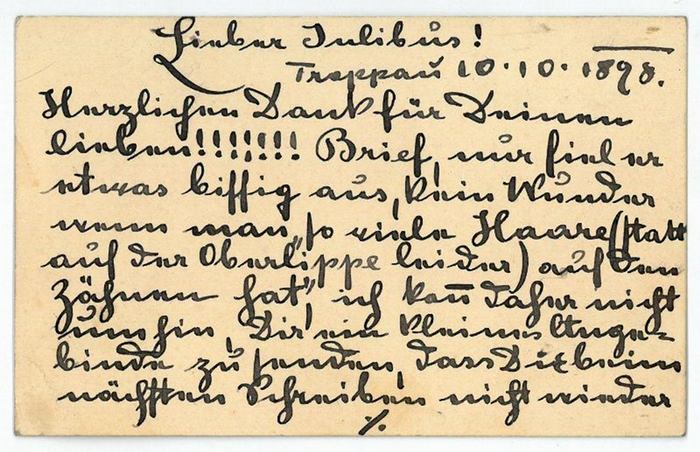 Lieber Julibus!
Troppau 10.10.1898.
Herzlichen Dank für Deinen
lieben!!!!!!! Brief, nur fiel er
etwas biffig aus, kein Wunder
wenn man „so viele Haare (statt
auf der Oberlippe leider) auf den
Zähnen hat", ich kan̄ daher nicht
umhin, Dir ein kleines Ange=
binde zu senden, dass Dir beim
nächsten Schreiben nicht wieder
·/.